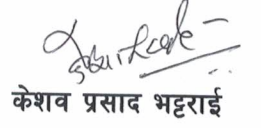 केशव प्रसाद भट्टराई